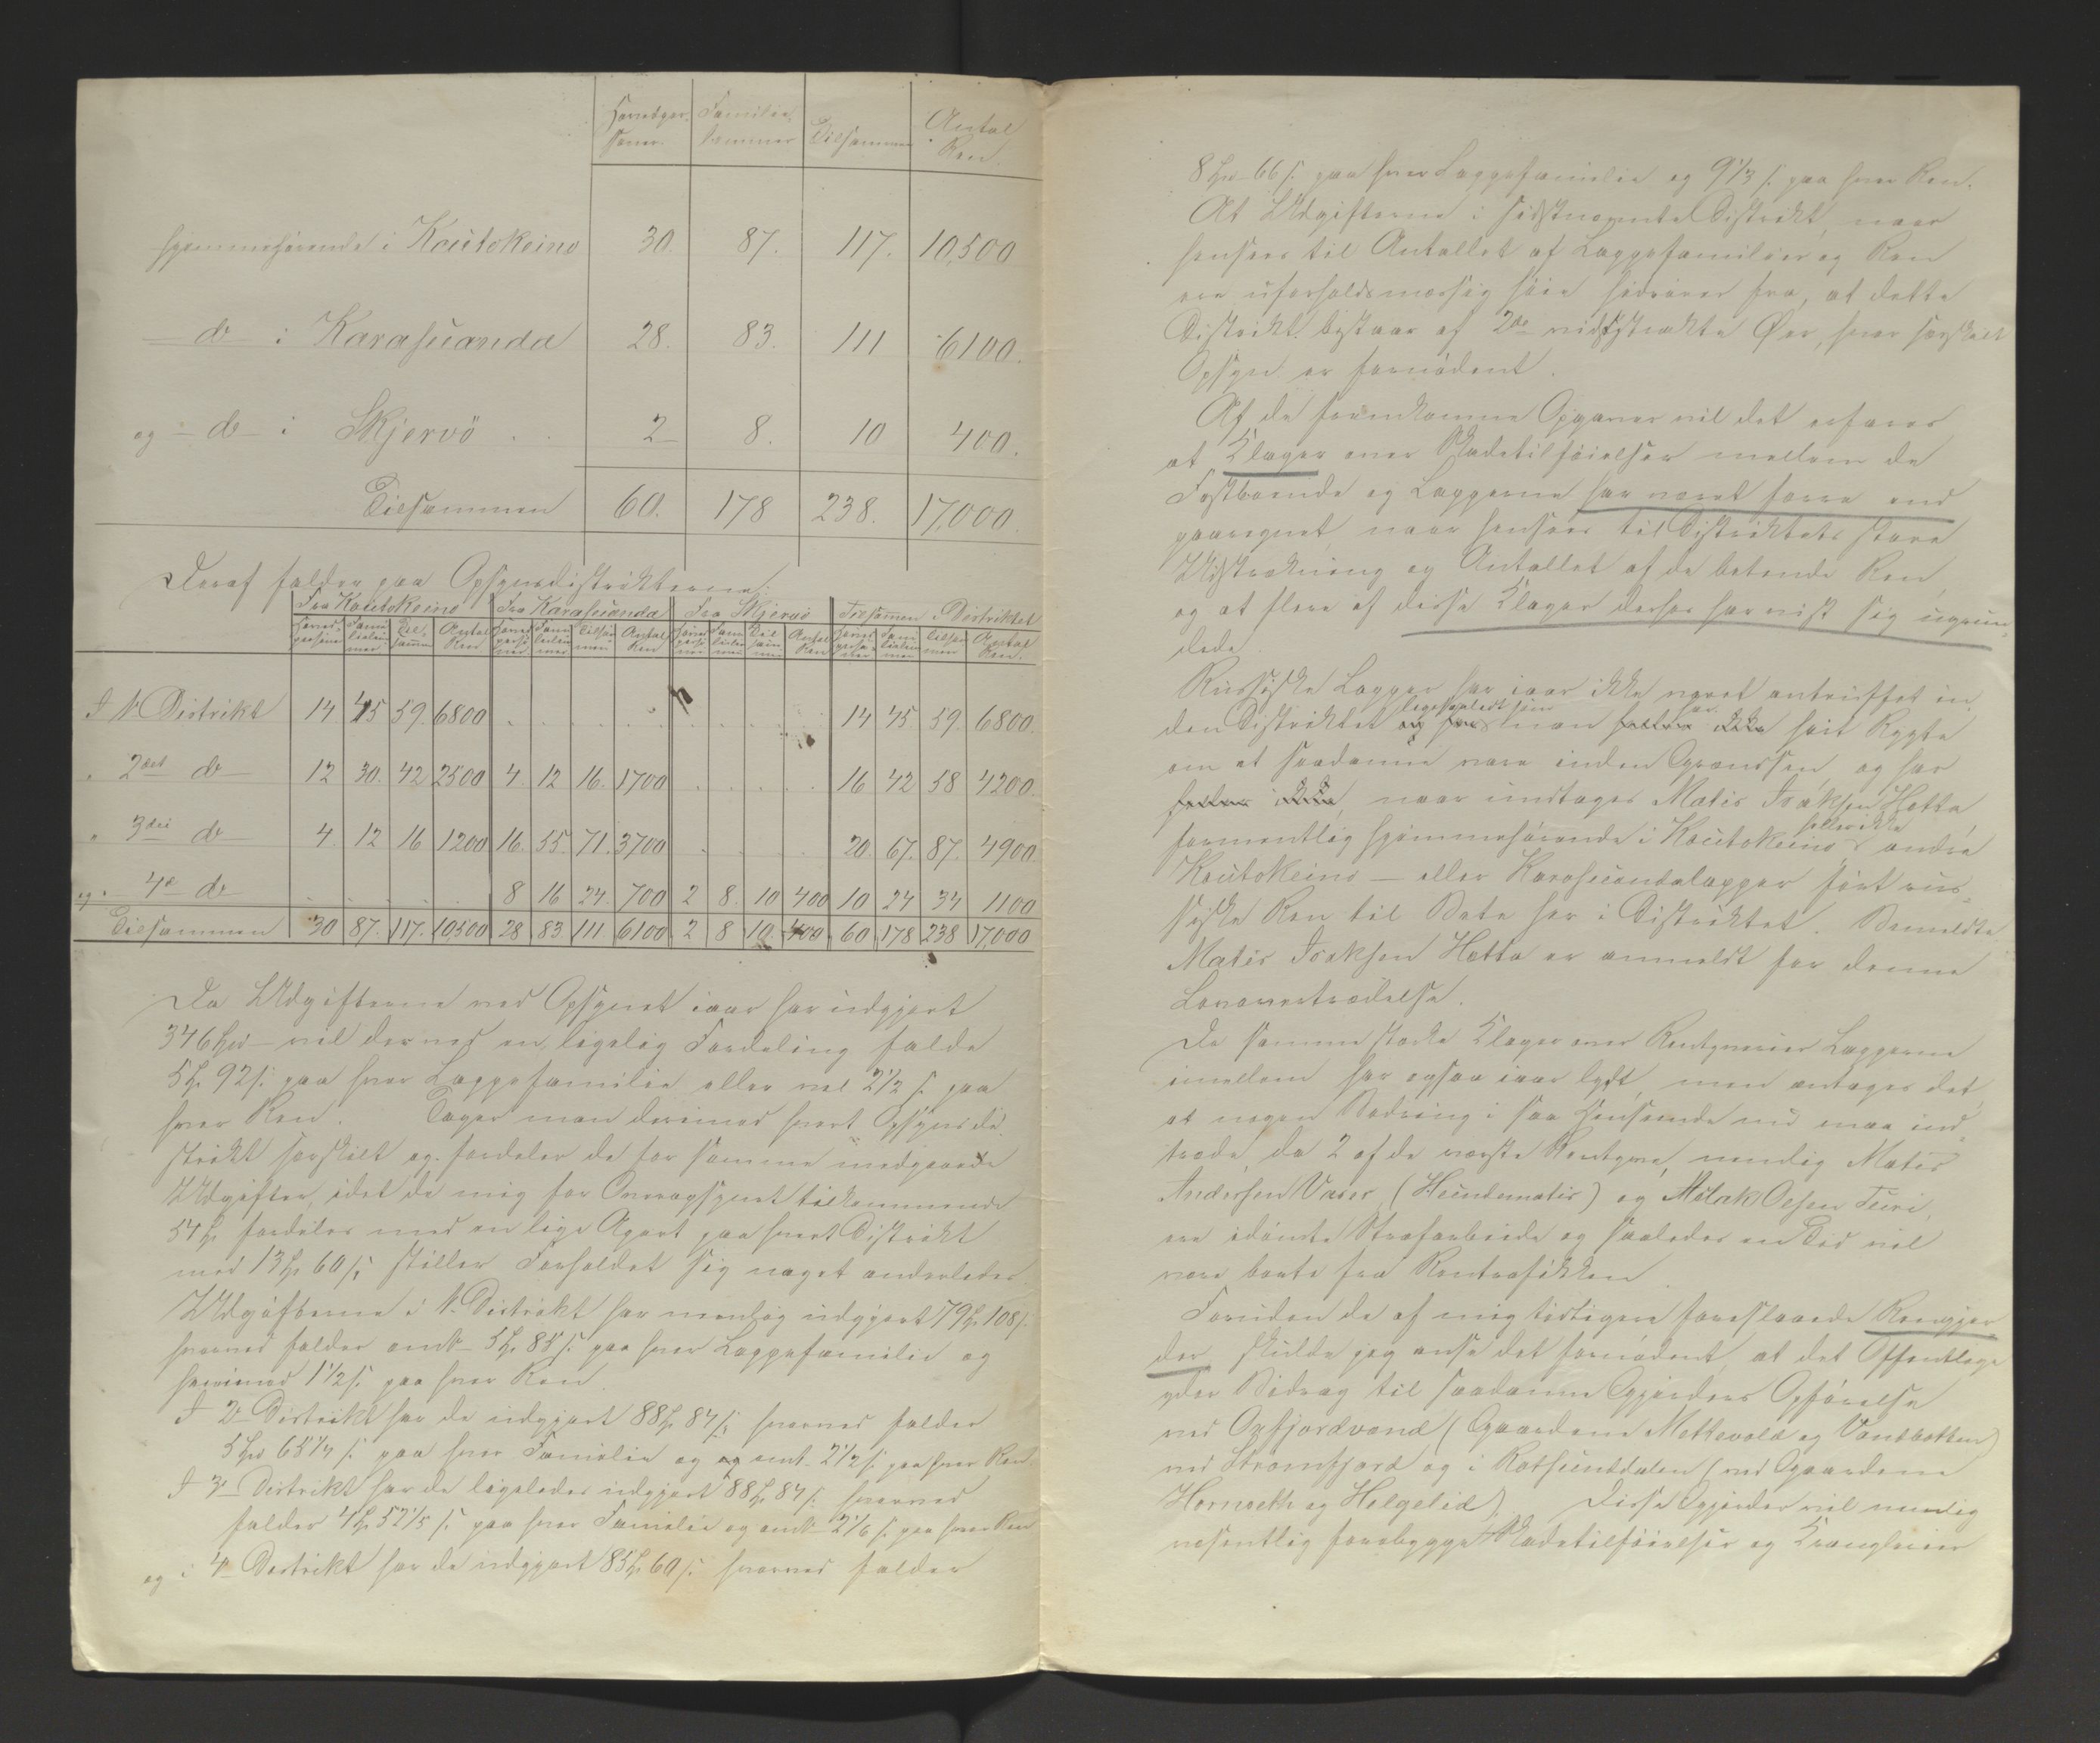 Hovedper- Familie- Tilsammen Antal
soner. lemmer Ren.
hjemmehørende i Koutokeino 30. 87. 117. 10,500
— do — i Karasuando 28. 83. 111 6100.
og — do — i Skjervö 2 8. 10 400.
Tilsammen 60. 178 238. 17,000.
Deraf falder paa Opsynsdistrikterne:
Fra Koutokeino Fra Karasuando Fra Skjervö Tilsammen i Distriktet
Hoved- Fami- Til- Antal Hoved- Fami- Tilsam- Antal Hoved- Fami- Til- Antal Hoved- Fami- Tilsam- Antal
personer lielem- samm Ren perso- lielem- men Ren perso- lielem- sam- Ren perso- lielem- men Ren.
mer ner mer ner mer men ner mer
I 1. Distrikt 14 45 59. 6800 . . . . . . . . 14 45. 59. 6800.
" 2det do 12 30. 42 2500 4. 12 16. 1700 . . . . 16 42 58 4200.
" 3die do 4. 12 16 1200 16. 55. 71. 3700 . . . . 20. 67. 87. 4900.
og " 4de do . . . . 8 16 24. 700 2 8. 10 400 10 24 34 1100
Tilsammen 30 87. 117. 10,500 28 83. 111 6100 2 8 10 400 60 178 238 17,000
Da Udgifterne ved Opsynet iaar har udgjort
346 Spd vil derved en ligelig Fordeling falde
5 Sp. 92 s. paa hver Lappefamilie eller vel 2½ s. paa
hver Ren. Tager man derimod hvert Opsynsdi-
strikt særskilt og fordeler de for samme medgaaede
Udgifter, idet de mig for Overopsynet tilkommende
54 Sp. fordeles med en lige Apart paa hvert Distrikt
med 13 Sp. 60 s., stiller Forholdet sig noget anderledes.
Udgifterne i 1. Distrikt har nemlig udgjort 79 Sp. 108 s.
hvorved falder omt. 5 Sp. 85 s. paa hver Lappefamilie og
henimod 1½ s. paa hver Ren.
I 2. Distrikt har de udgjort 88 Sp. 84 s., hvorved falder
5 Spd 65¼ s. paa hver Familie og omt. 2½ s. paa hver Ren.
I 3. Distrikt har de ligeledes udgjort 88 Sp. 84 s. hvorved
falder 4 Sp. 52⅕ s. paa hver Familie og omt. 2⅙ s. paa hver Ren
og i 4. Distrikt har de udgjort 85 Sp. 60 s. hvorved falder
8 Spd 66 s. paa hver Lappefamilie og 9⅓ s. paa hver Ren.
At Udgifterne i sidstnævnte Distrikt, naar
hensees til Antallet af Lappefamilier og Ren
ere uforholdsmæssig høie hidrører fra, at dette
Distrikt bestaar af 2de vidtstrakte Øer, hvor særskilt
Opsyn er fornødent.
Af de fremkomne Opgaver vil det erfares
at Klager over Skadetilføielser mellem de
Fastboende og Lapperne har været færre end
paaregnet, naar hensees til Distriktets store
Udstrækning og Antallet af de betende Ren,
og at flere af disse Klager derhos har vist sig ugrun-
dede.
Russiske Lapper har iaar ikke været antruffet in-
den Distriktet ligesaalidt som man har hørt Rygte
om at saadanne vare inden Grænsen, og har
heller ikke, naar undtages Matis Isaksen Hætta,
formentlig hjemmehørende i Koutokeino, heller ikke andre
Koutokeino- eller Karasuandolapper ført rus-
siske Ren til Bete her i Distriktet. Bemeldte
Matis Isaksen Hætta er anmeldt for denne
Lovovertrædelse.
De samme stærke Klager over Rentyverier Lapperne
imellem har ogsaa iaar lydt, men antages det,
at nogen Bedring i saa Henseende nu maa ind-
træde, da 2 af de værste Rentyve, nemlig Matis
Andersen Vasas (Hundematis) og Aslak Olsen Turi,
ere idømte Strafarbeide og saaledes en Tid vil
være borte fra Rentrafikken.
Foruden de af mig tidligere foreslaaede Rengjær-
der, skulde jeg anse det fornødent, at det Offentlige
yder Bidrag til saadanne Gjærders Opførelse
ved Oxfjordvand (Gaardene Mettevold og Vandbotten)
ved Straumfjord og i Rotsunddalen (ved Gaardene
Hornseth og Helgelid). Disse Gjærder vil nemlig
væsentlig forebygge Skadetilføielser og Kranglerier